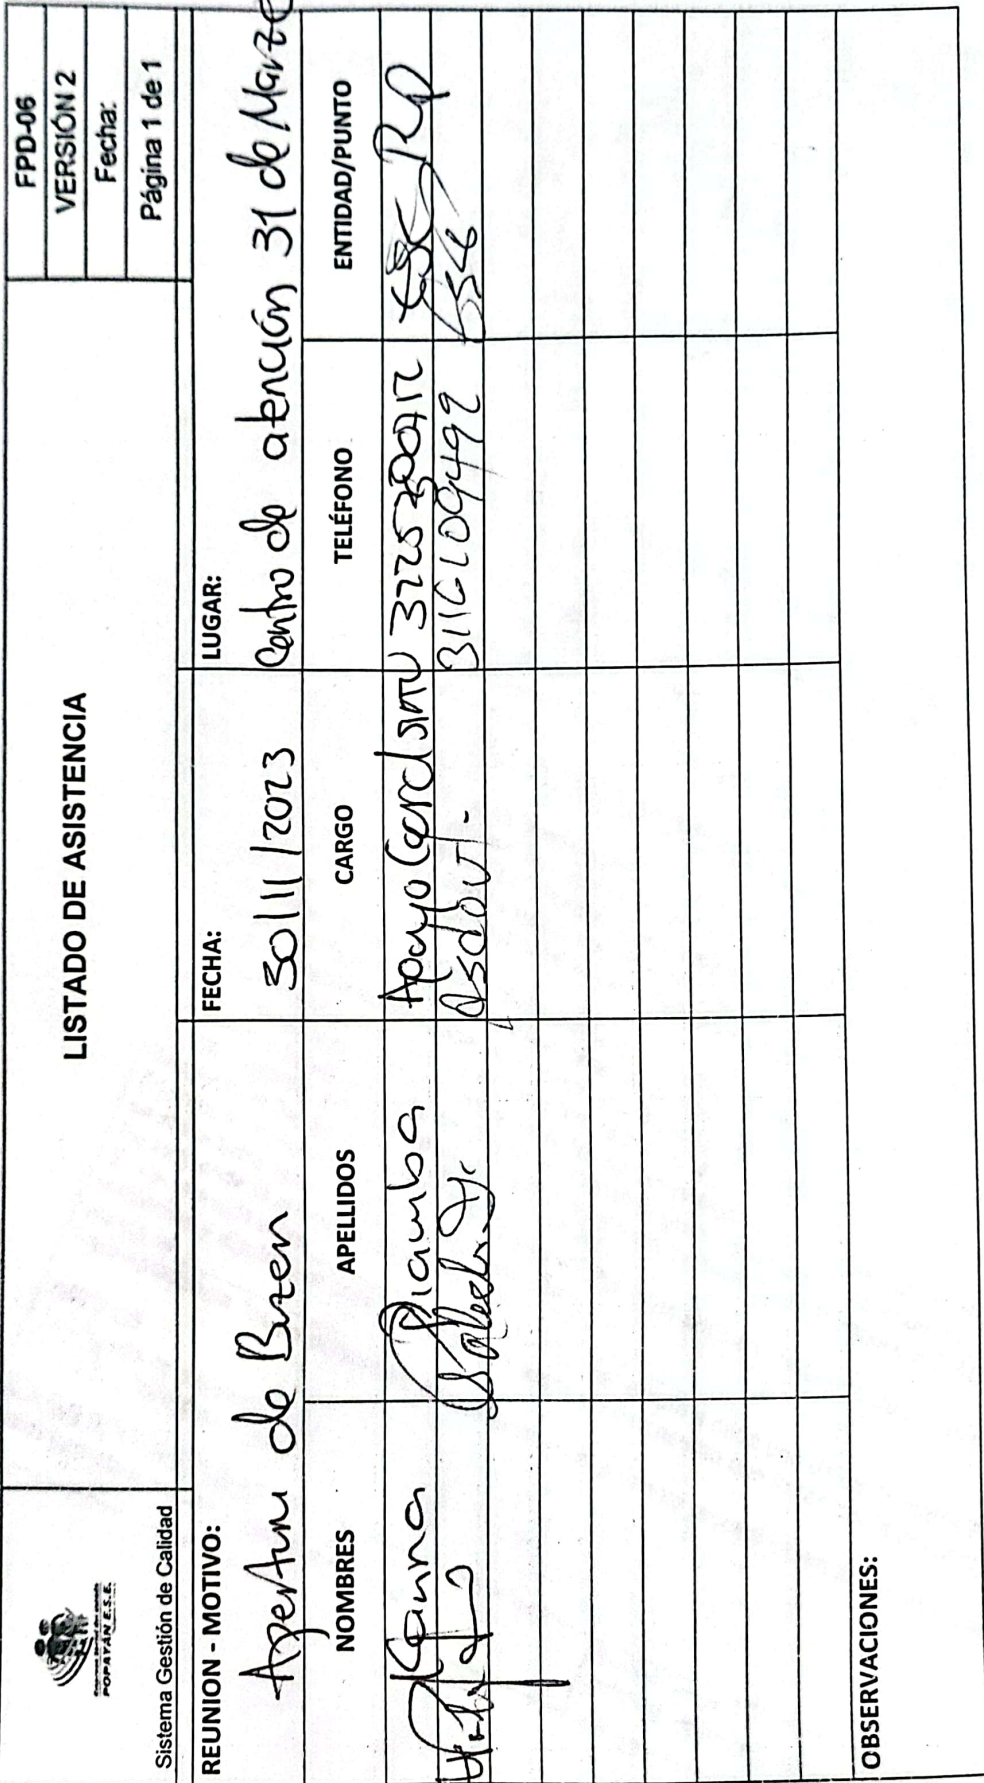 POPAYÁN E.S.E.
Sistema Gestión de Calidad
LISTADO DE ASISTENCIA
FPD-06
VERSIÓN 2
Fecha:
Página 1 de 1
REUNION - MOTIVO:
Apertura de Buzen
FECHA:
30/11/2023
LUGAR:
Centro de atención 31 de Marzo
NOMBRES APELLIDOS CARGO TELÉFONO ENTIDAD/PUNTO
Piamba Apoyo
3116109492 ESE
OBSERVACIONES: